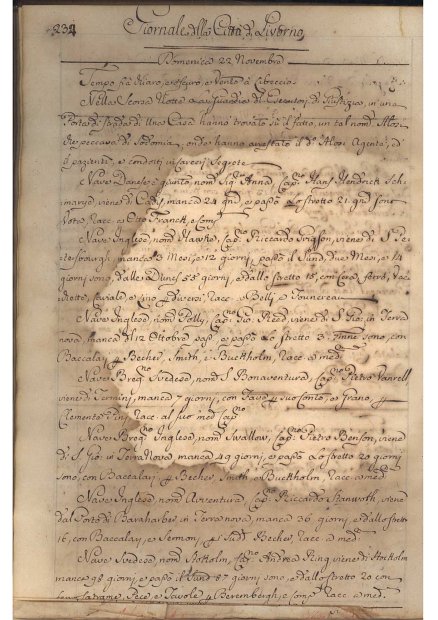 234
Giornale della Città di Livorno
Domenica 22 Novembre
Tempo frà chiaro, e oscuro, e vento à Libeccio
Nella Scorsa Notte da Guardie ed Esecutori di Giustizia, in una
di Una Casa hanno trovato sù il fatto, un tal nom.
che peccava di Sodomia, onde hanno arrestato il d.º Agente, ed
il paziente, e condotti in Carceri Segrete
Nave Danese è giunto, nom. Sig.ra Anna, Cap.no Hans Hendrick Sch
viene di Cadis, manca 24 gni, e passò Lo Stretto 21 gni sono
Vote, Racc. e Franck, e Comp.
Nave Inglese, nom. Hawke, Cap. Riccardo viene di S. Pe
manca 3 Mesi, e 12 giorni, passò il Sund, due Mesi, e 14
giorni sono, dalle Dunes 55 giorni, e dallo Stretto 15, con Cera, ferro, Vac
e Lino p Diversi, Racc. a
Nave Inglese, nom. Polly, Cap. Gio. Reed, viene di S. Gio. in Terra
nova, manca dal 12 Ottobre pass. e passò Lo Stretto 3 sono, con
Baccalay p Becher, Smith, e Buckholm, Racc. a med.
Nave Svedese, nom. S. Bonaventura, Cap. Pietro
viene di Termini, manca 7 giorni, con p suo Conto, e Grano, p
Clemente Racc. al suo med. Cap.no
Nave Inglese, nom. Swallow, Cap. Pietro Benson, viene
di S. Gio. in Terra Nova, manca 49 giorni, e passò Lo Stretto 20 giorni
sono, con Baccalay p Becher, Smith, e Buckholm, Racc. a med.
Nave Inglese, nom. Avventura, Cap. Riccardo Stanworth, viene
dal Porto di in Terra nova, manca 36 giorni, e dallo Stretto
16, con Baccalay, e Semon, p Sudd. Becher, Racc. a med.
Nave Svedese, nom. Stokolm, Cap. Andrea Ring viene di Stockolm
manca 98 giorni, e passò il Sund 87 giorni sono, e dallo Stretto 20 con
Catrame, Pece, e Tavole p Berembergh, e Comp. Racc. a med.